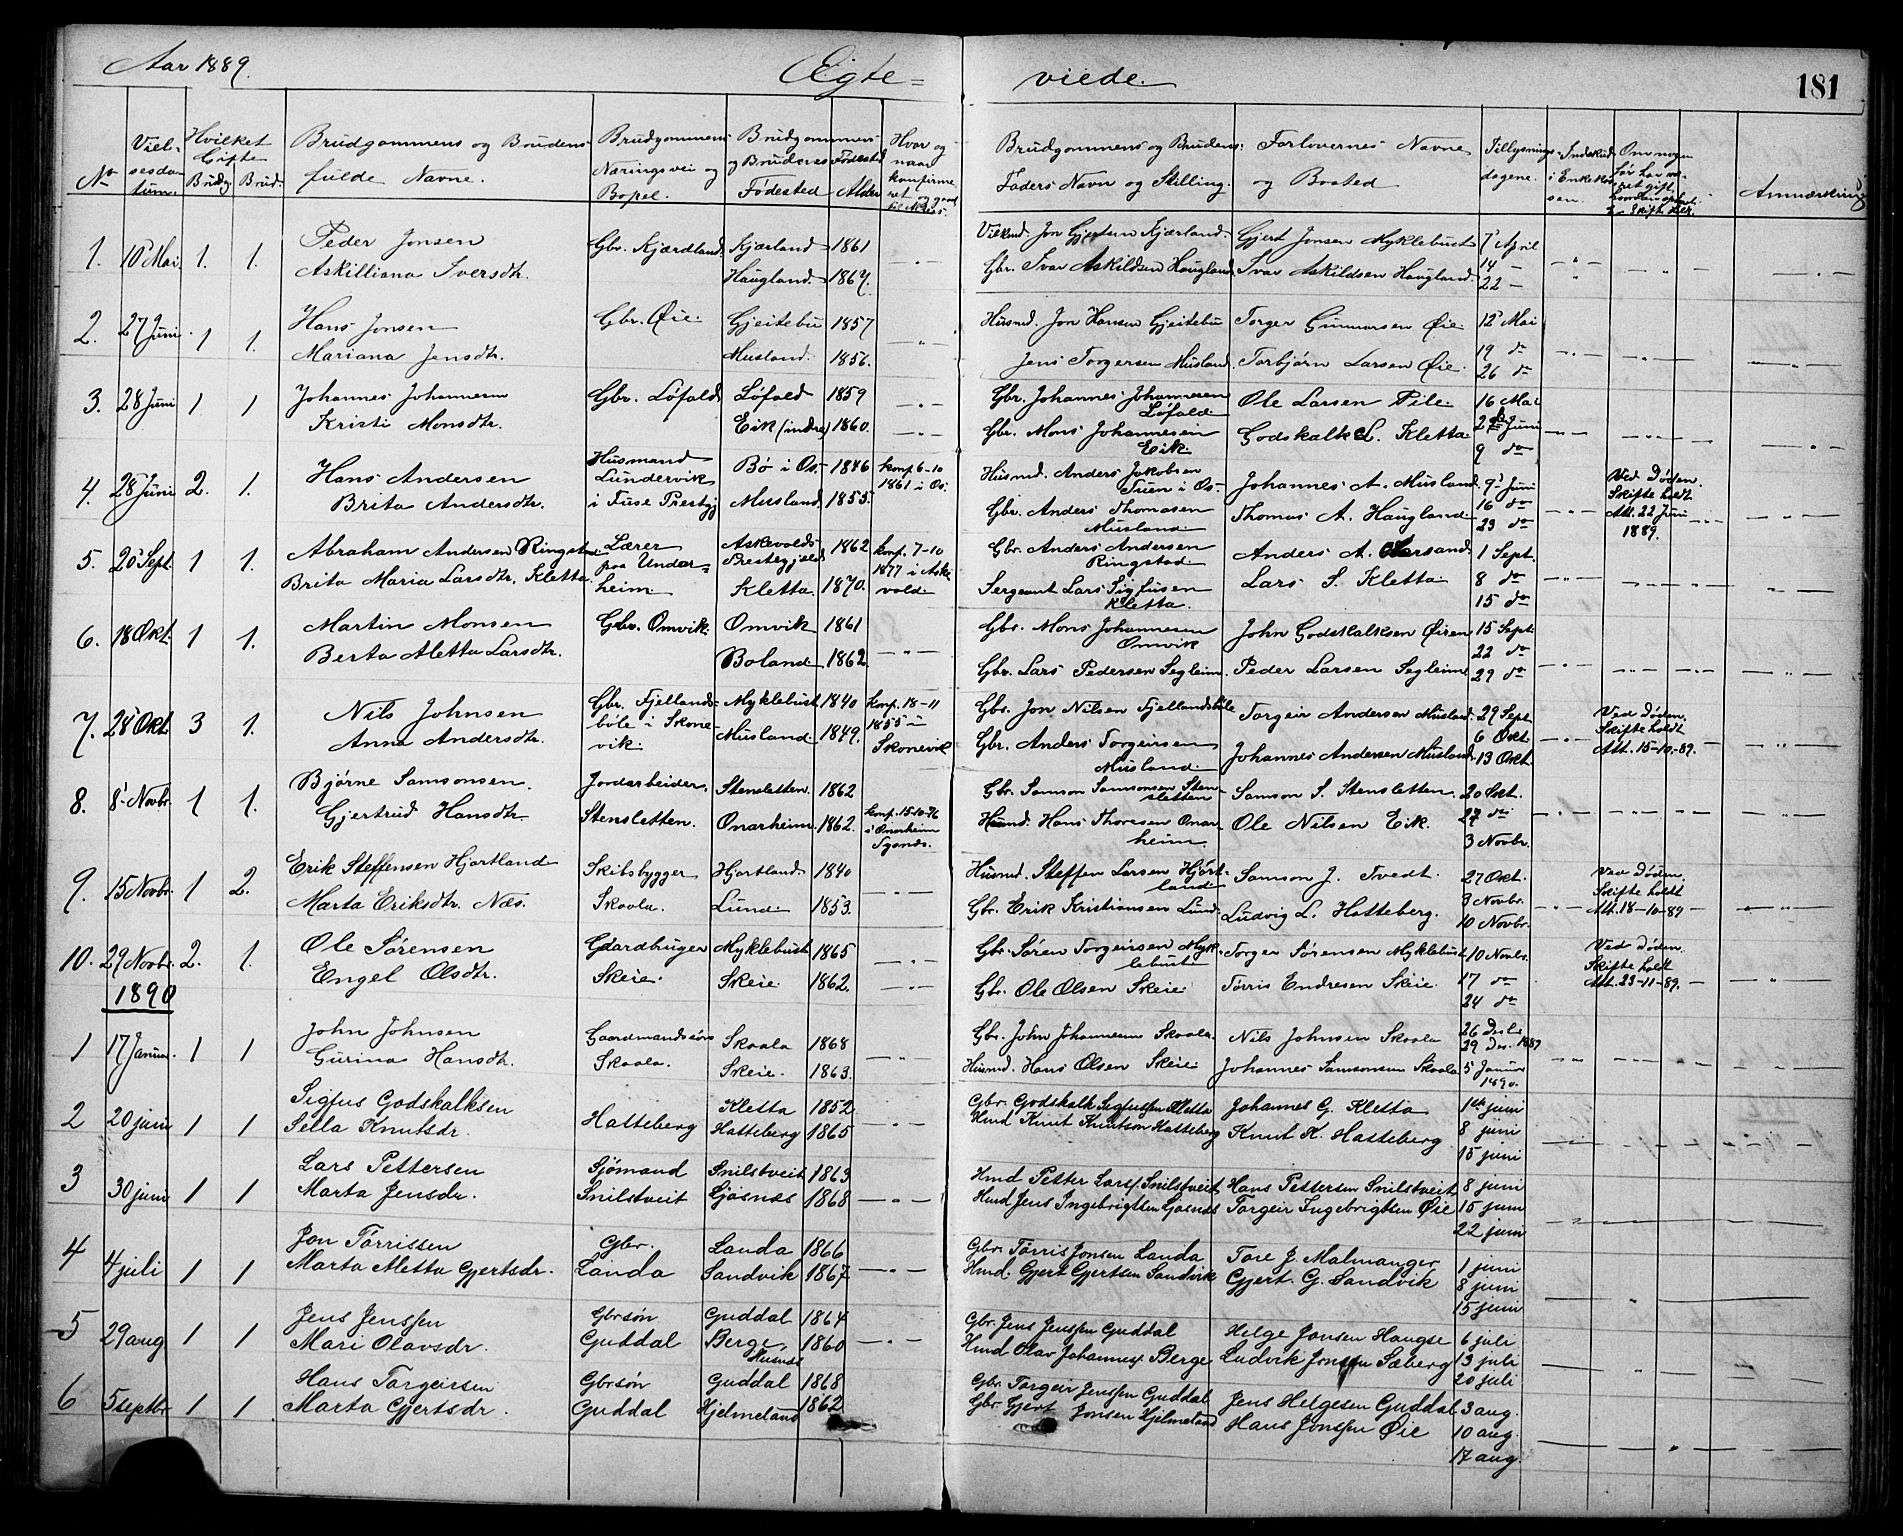 Aar 1889.
Ægte = viede.
181
No
Viel-
sesda-
tum.
Hvilket
Gifte
Brudg. Brud.
Brudgommens og Brudens
fulde Navne.
Brudgommens
Næringsvei og
Bopel.
Brudgommens
og Brudens
Fødested
Alder
Hvor og
naar
konfirme
ret
Brudgommens og Brudens
Faders Navn og Stilling.
Forlovernes Navne
og Bosted
Tillysnings-
dagene.
Om nogen
før har væ-
ret gift,
Anmærkning
1. 10 Mai 1. 1. Peder Jonsen Gbr. Kjærdland. Kjærland 1861 Jon Gjertsen Kjærland. Gjert Jonsen Myklebust 7 April
Askilliana Iversdtr. Haugland 1867. Gbr. Ivar Askildsen Haugland. Ivar Askildsen Haugland. 14 –
22 –
2. 27 Juni 1 1. Hans Jonsen Gbr. Øie. Gjeitebu 1857 Husmd. Jon Hansen Gjeitebu Torger Gunnarsen Øie. 12 Mai
Mariana Jensdtr. Musland. 1856. Jens Torgersen Musland. Torbjørn Larsen Øie. 19 do
26 do
3. 28 Juni 1 1 Johannes Johannesen Gbr. Løfald Løfald 1859 Gbr. Johannes Johannesen Ole Larsen Pile 16 Mai
Løfald
Kristi Monsdtr. Eik (indre) 1860. Gbr. Mons Johannesen Godskalk L. Kletta 2 Juni
Eik. 9 do
4. 28 Juni 2. 1. Hans Andersen Husmand Bø i Os. 1846 konf. 6-10 Husmd. Anders Jakobsen Johannes A. Musland. 9 Juni Ved Døden.
Lundervik 1861 i Os. Tuen i Os. 16 do Skifte holdt
Brita Andersdtr. i Fuse Prestgj Musland. 1855. Gbr. Anders Thomasen Thomas A. Haugland 23 do Att. 22 Juni
Musland 1889.
5. 20 Sept. 1 1. Abraham Andersen Ringstad Lærer Askevolds 1862 konf. 7-10 Gbr. Anders Andersen Anders A. 1 Sept.
paa Undar= Prestegjeld 1877 i Aske Ringstad
Brita Maria Larsdtr. Kletta heim Kletta 1870. vold Sergeant Lars Sigfusen Lars S. Kletta 8 do
Kletta. 15 do
6. 18 Okt. 1 1. Martin Monsen Gbr. Omvik. Omvik 1861 Gbr. Mons Johannesen John Godskalksen Øiren 15 Sept.
Omvik 22 do
Berta Aletta Larsdtr. Boland 1862. Gbr. Lars Pedersen Segleim. Peder Larsen Segleim 29 do
7. 28 Okt. 3 1. Nils Johnsen Gbr. Fjellands- Myklebust 1840 konf. 18-11 Gbr. Jon Nilsen Fjellandsbøle Torgeir Andersen Musland. 29 Sept. Ved Døden.
bøle i Skone 1855 i 6 Okt. Skifte holdt
Anna Andersdtr. vik. Musland 1849. Skonevik Gbr. Anders Torgeirsen Johannes Andersen Musland. 13 Okt. Att. 15-10-89.
Musland.
8. 8 Novbr. 1 1. Bjørne Samsonsen Jordarbeider. Stensletten. 1862 Gbr. Samson Samsonsen Sten- Samson S. Stensletten. 20 Okt.
sletten
Gjertrud Hansdtr. Stensletten. Onarheim. 1862. konf. 15-10-76 Husmd. Hans Thoresen Onar- Ole Nilsen Eik. 27 do
i Onarheim heim 3 Novbr.
Tysnes.
9. 15 Novbr. 1 2. Erik Steffensen Hjortland Skibsbygger Hjortland 1840 Husmd. Steffen Larsen Hjort- Samson J. Tvedt. 27 Okt. Ved Døden.
land 3 Novbr. Skifte holdt
Marta Eriksdtr. Næs. Skaala. Lund 1853. Gbr. Erik Kristiansen Lund. Ludvig L. Hatteberg. 10 Novbr. Att. 18-10-89
10. 29 Novbr. 2. 1. Ole Sørensen Gaardbruger Myklebust 1865 Gbr. Søren Torgeirsen Myk- Torger Sørensen Myklebust 10 Novbr. Ved Døden.
lebust Skifte holdt
Engel Olsdtr. Skeie. Skeie. 1862. Gbr. Ole Olsen Skeie. Tørris Endresen Skeie. 17 do Att. 23-11-89.
24 do
1890
1 17 Januar. 1 1 John Johnsen Gaardmandssøn Skaala 1868 Gbr. John Johannesen Skaala. Nils Johnsen Skaala 26 Desb.
29 Des. 1889
Gurina Hansdtr. Skaala. Skeie. 1863. Husmd. Hans Olsen Skeie. Johannes Samsonsen Skaala 5 Januar
1890.
2 20 juni 1 1 Sigfus Godskalksen Kletta 1852 Gbr. Godskalk Segfussen Kletta Johannes G. Kletta 1ste juni
Sella Knutsdr. Hatteberg Hatteberg 1865 Hmd Knut Knutson Hatteberg Knut K. Hatteberg 8 juni
15 juni
3 30 juni 1 1 Lars Pettersen Sjömand Snilstveit 1863 Hmd Petter Larss. Snilstveit Hans Pettersen Snilstveit 8 juni
Marta Jensdr. Snilstveit Gjøsnes 1868 Hmd Jens Ingebrigtsen Gjøsnes Torgeir Ingebrigtsen Øie 15 juni
22 juni
4 4 juli 1 1 Jon Tørrissen Gbr. Landa 1866 Gbr. Tørris Jonsen Landa Tore J. Malmanger 1 juni
Marta Aletta Gjertsdr. Landa Sandvik 1867 Hmd. Gjert Gjertsen Sandvik Gjert. G. Sandvik 8 juni
15 juni
5 29 aug 1 1 Jens Jenssen Gbrsøn Guddal 1864 Gbr. Jens Jenssen Guddal Helge Jonsen Haugse 6 juli
Mari Olavsdr. Guddal Berge, 1860 Hmd Olav Johanness. Berge Ludvik Jonssen Sæberg 13 juli
Husnes 20 juli
6 5 septbr 1 1 Hans Torgeirsen Gbrsøn Guddal 1868 Gbr. Torgeir Jenssen Guddal Jens Helgesen Guddal 3 aug.
Marta Gjertsdr. Guddal Hjelmeland 1862 Gbr. Gjert Jonsen Hjelmeland Hans Jonssen Øie 10 aug.
17 aug.